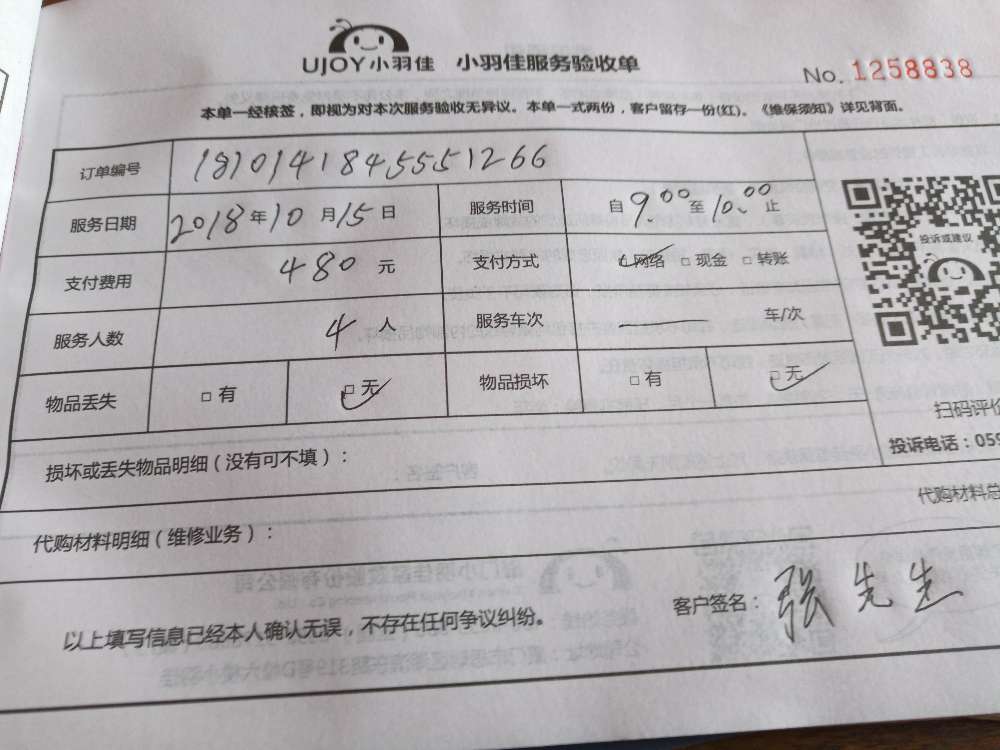 UJOY小羽佳 小羽佳服务验收单
No. 1258838
本单一经核签，即视为对本次服务验收无异议。本单一式两份，客户留存一份(红)。《维保须知》详见背面。
订单编号 18101418455551266
服务日期 2018年10月15日 服务时间 自9:00至10:00止
支付费用 480元 支付方式 □网络 □现金 □转账
服务人数 4人 服务车次 车/次
物品丢失 □有 □无 物品损坏 □有 □无
投诉或建议
扫码评价
投诉电话：059
损坏或丢失物品明细（没有可不填）：
代购材料明细（维修业务）：
代购材料总
以上填写信息已经本人确认无误，不存在任何争议纠纷。
客户签名：张先生